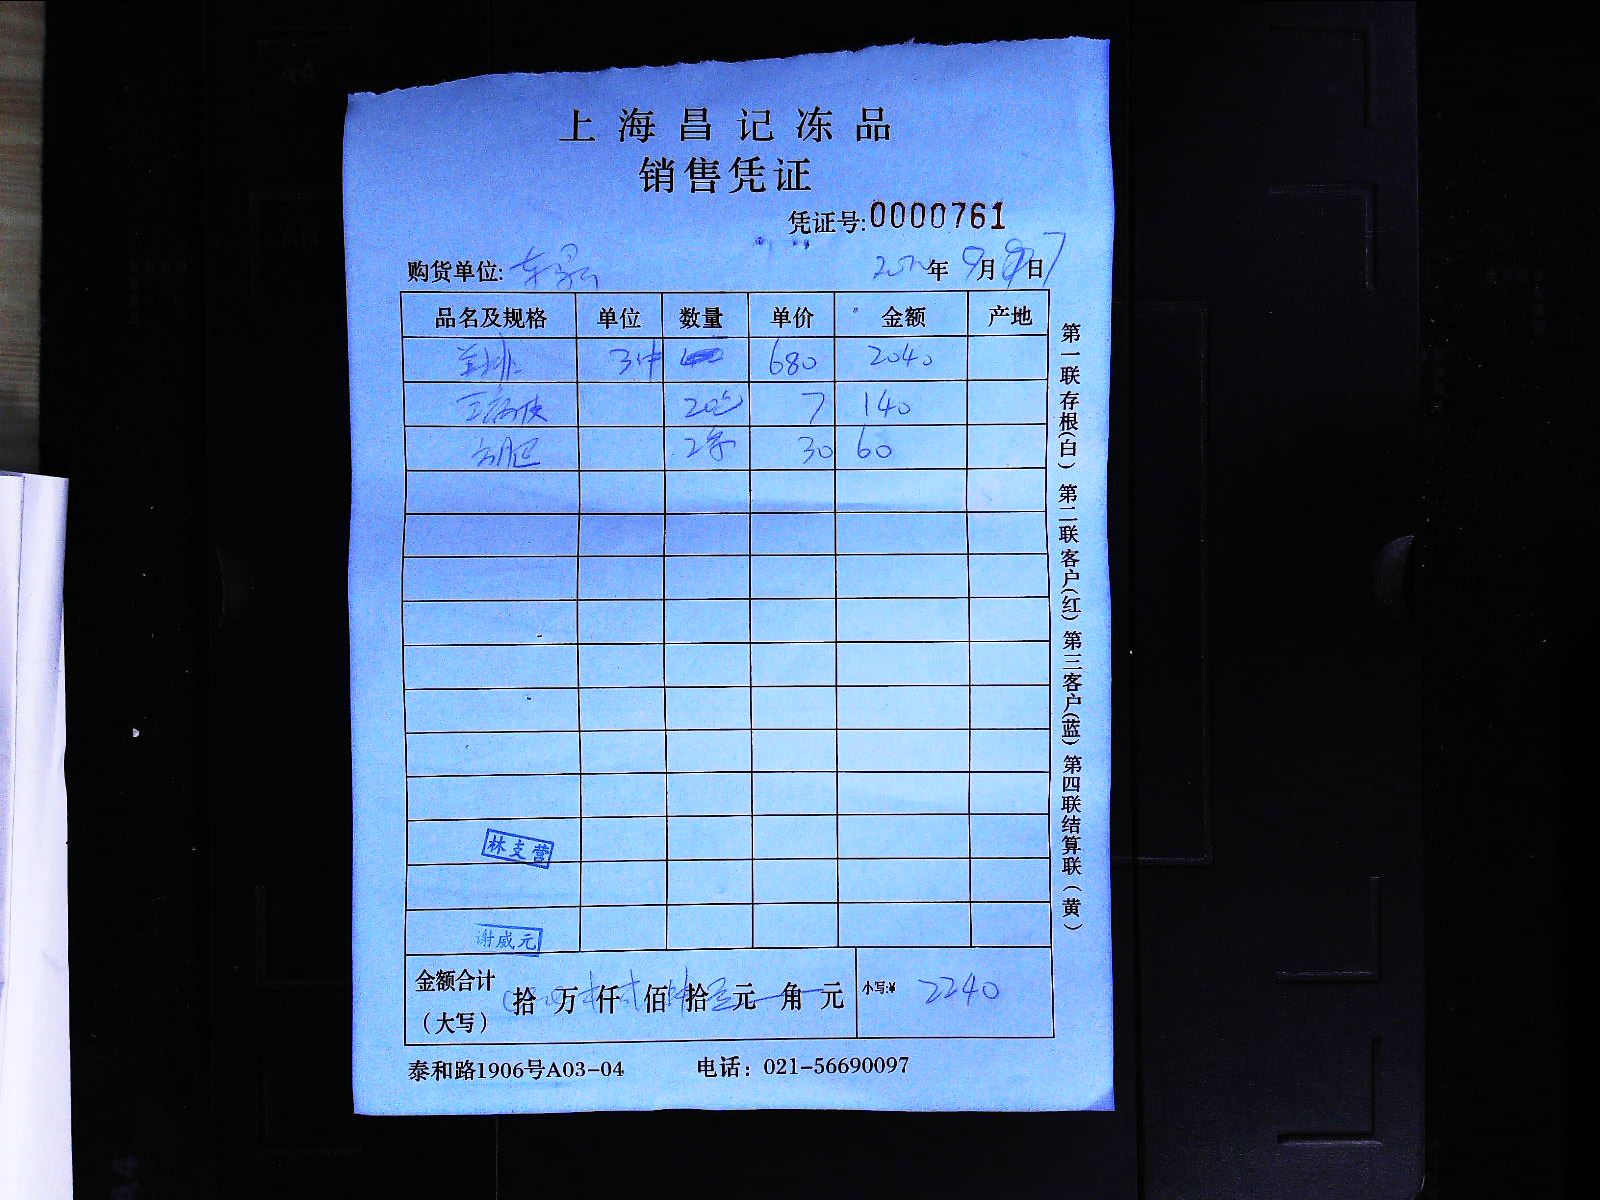 上海昌记冻品
销售凭证
凭证号:0000761
购货单位: 年 9月 日
品名及规格 单位 数量 单价 金额 产地
羊排 3件 680 2040
20包 7 140
30 60
林支营
谢威元
金额合计（大写） 拾 万 仟 佰 拾 元 角 元 小写:¥ 2240
泰和路1906号A03-04 电话：021-56690097
第一联存根(白) 第二联客户(红) 第三客户(蓝) 第四联结算联(黄)